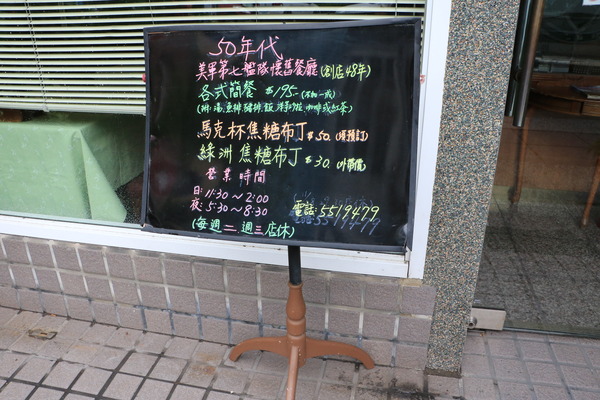 50年代
美軍第七艦隊懷舊餐廳(創店48年)
各式簡餐 $195.(不加一成)
咖啡或紅茶)
馬克杯焦糖布丁$50.(須預訂)
綠洲 焦糖布丁$30.(外帶價)
營業時間
日:11:30~2:00
夜:5:30~8:30
電話:5519479
(每週二.週三店休)